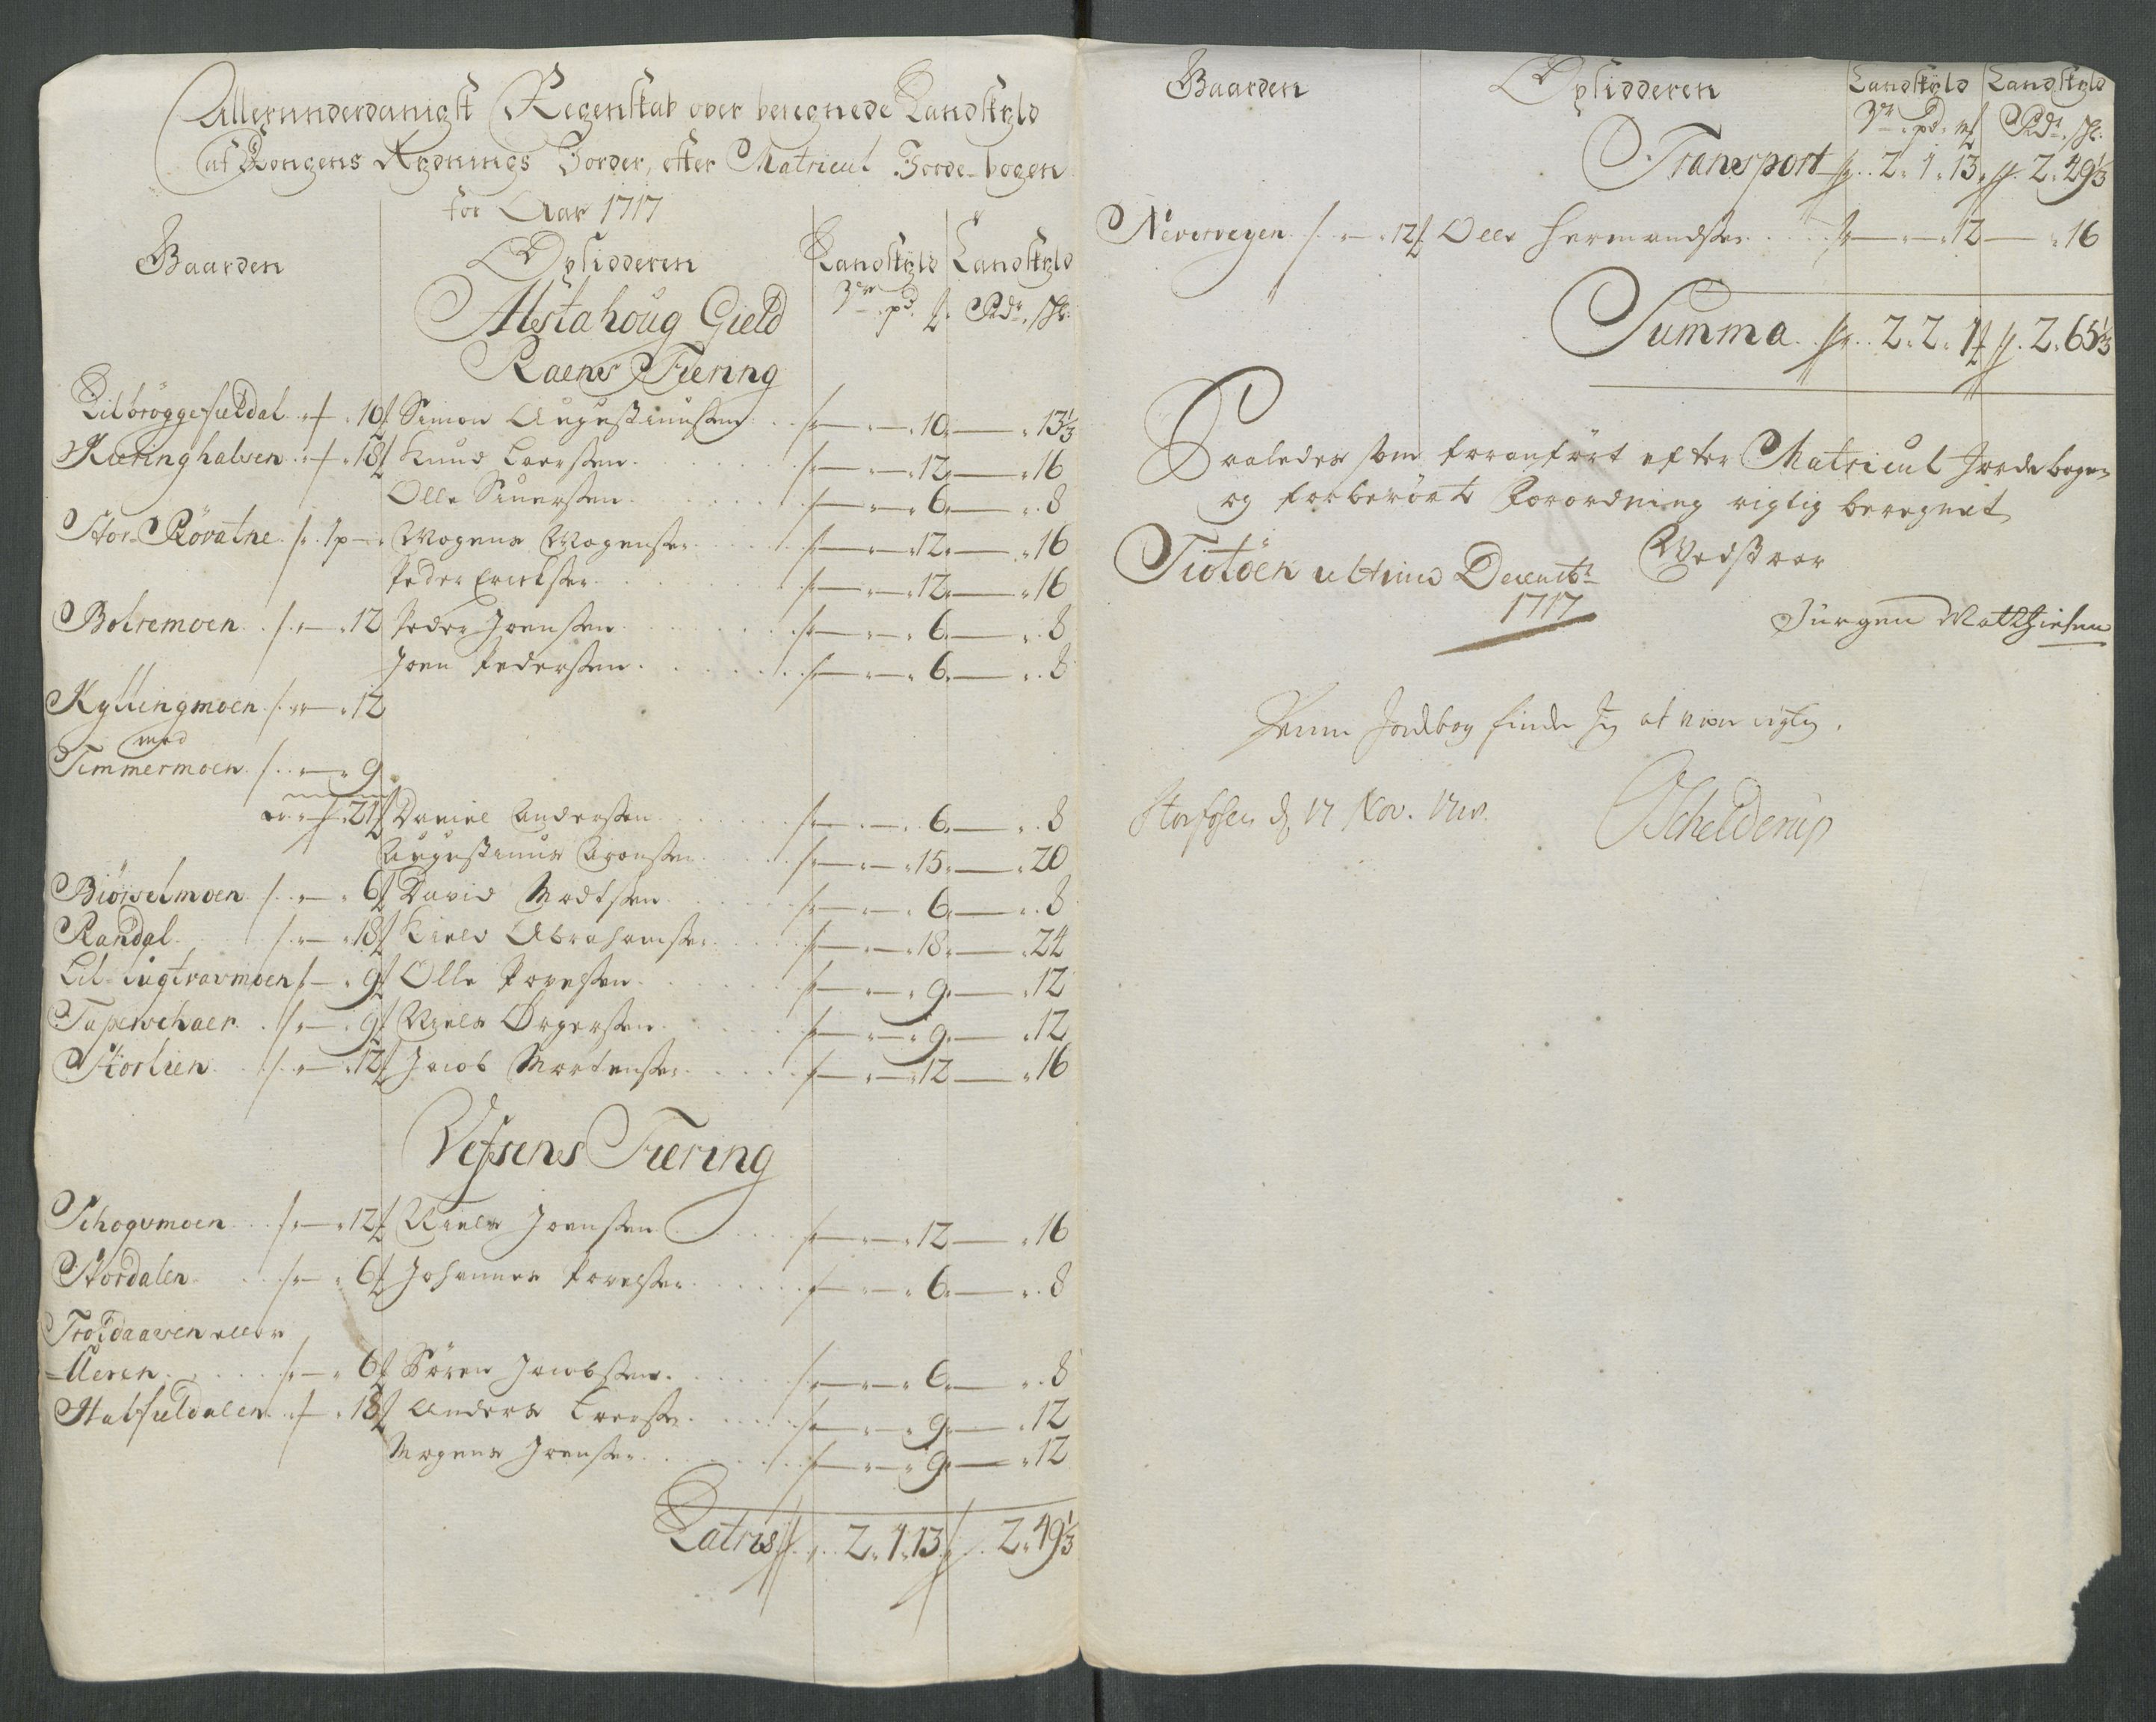 Allerunderdanigst Regenskab over beregnede Landskyld
af Kongens Rydnings Jorder, efter Matricul Jorde-bogen
for Aar 1717
Gaarden Opsidderen Landskyld Landskyld
Alstahoug Gield Vr pd. Rdr. sk:
Raens Fiering
Lilbröggefieldal 10 Simon Augustinussen 10 13 1/3
Kieringhalsen 18 Knud Larssen 12 16
Olle Siuerssen 6 8
Stor-Rövatne 1p Mogens Mogensen 12 16
Peder Erichsen 12 16
Bolremoen 12 Peder Joenssen 6 8
Joen Pederssen 6 8
Kyllingmoen 12
med
Timmermoen 9
21 Daniel Anderssen 6 8
Augustinus Aronssen 15 20
Biörselmoen 6 David Madtssen 6 8
Randal 18 Kield Abrahamsen 18 24
Lil-lugtvavmoen 9 Olle Povelssen 9 12
Taperschaer 9 Niels 9 12
Storlien 12 Jacob Mortensen 12 16
Vefsens Fiering
Schogvmoen 12 Niels Joenssen 12 16
Stordalen 6 Johannes Povelsen 6 8
Troldaaven eller
Ueren 6 Sören Jacobssen 6 8
Hatfieldalen 18 Anders Larssen 9 12
Mogens Joensen 9 12
Latris 2. 1. 13 2. 49 1/3
Gaarden Opsidderen Landskyld Landskyld
Vr. pd. Rdr. sk:
Transport 2. 1. 13 2. 49 1/3
Nevervegen 12 Olle Hermandsen 12 16
Summa 2. 2. 1 2. 65 1/3
Saaledes som foranfört efter Matricul Jordebogen
og forberörte Forordning rigtig beregnet
Tiotöen ultimo Decembr Vedstaar
1717
Jürgen Matthiesen
Denne Jordbog finder Jeg at være rigtig.
d. 17 Nov. 1718.
Schelderup